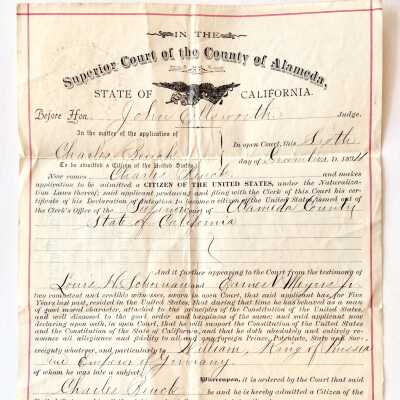 IN THE
Superior Court of the County of Alameda,
STATE OF CALIFORNIA.
Before Hon. John Ellsworth Judge.
In the matter of the application of
In open Court, this Sixth
Charles
day of December A.D. 18
To be admitted a Citizen of the United States
Now comes Charles and makes
application to be admitted a CITIZEN OF THE UNITED STATES, under the Naturaliza-
tion Laws thereof; said applicant produces and files with the Clerk of this Court his cer-
tificate of his Declaration of Intention to become a citizen of the United States, issued out of
the Clerk's Office of the Superior Court of Alameda County
State of California
And it further appearing to the Court from the testimony of
Louis H. and Earnest
two competent and credible witnesses, sworn in open Court, that said applicant has, for Five
Years last past, resided in the United States, that during that time he has behaved as a man
of good moral character, attached to the principles of the Constitution of the United States,
and well disposed to the good order and happiness of the same; and said applicant now
declaring upon oath, in open Court, that he will support the Constitution of the United States
and the Constitution of the State of California, and that he doth absolutely and entirely re-
nounce all allegiance and fidelity to all and every foreign Prince, Potentate, State and Sov-
ereignty whatever, and particularly to William, King of Prussia
Emperor of Germany
of whom he was late a subject.
Whereupon, it is ordered by the Court that said
Charles be and he is hereby admitted a Citizen of